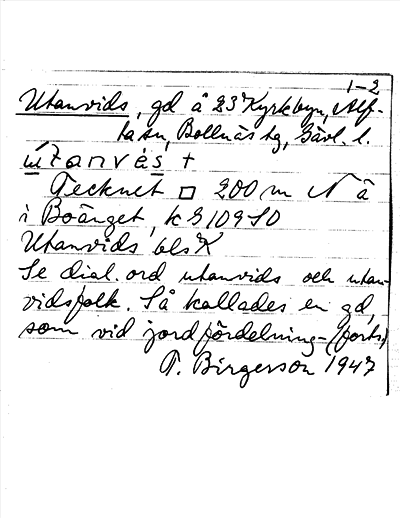 1-2
Utanvids, gd å 23 Kyrkbyn, Alf-
ta sn, Bollnäs tg, Gävl. l.
ɯtanvés +
Tecknet □ 200 m N å
i Boänget, k G 109 SO
Utanvids bls K
Se dial. ord utanvids och utan-
vidsfolk. Så kallades en gd,
som vid jordfördelning- (forts.)
T. Birgerson 1947